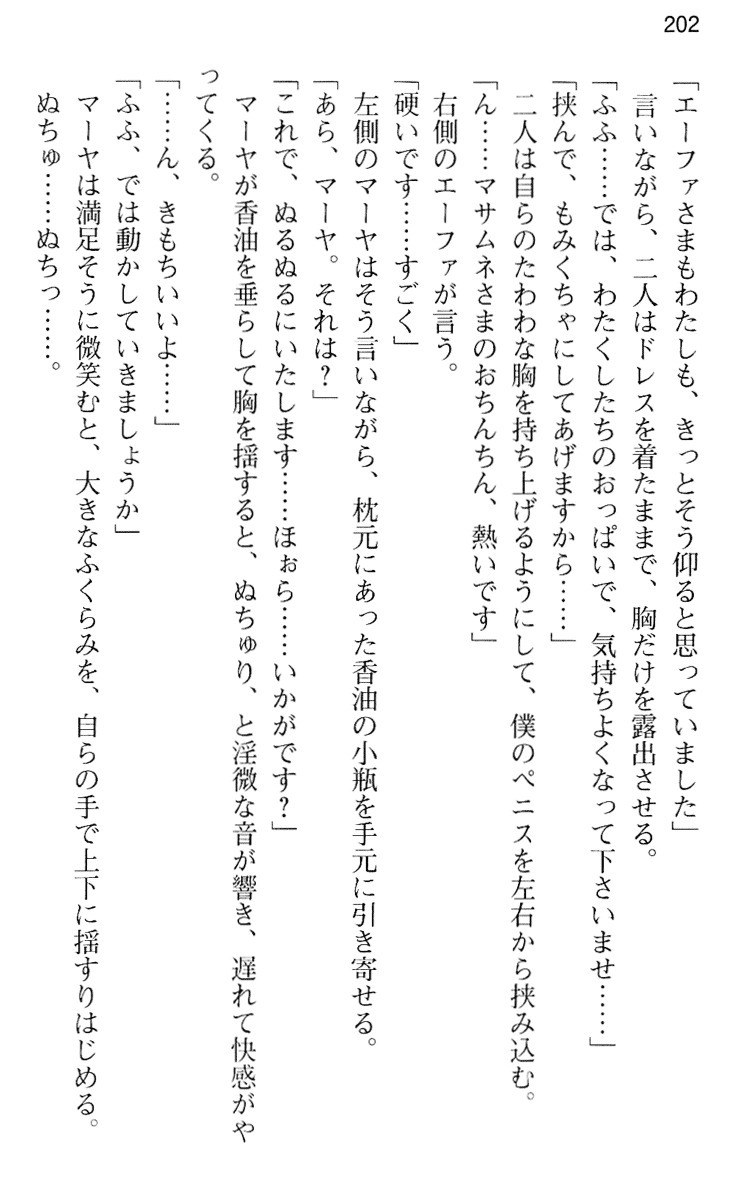 202
「エーファさまもわたしも、きっとそう仰ると思っていました」
言いながら、二人はドレスを着たままで、胸だけを露出させる。
「ふふ……では、わたくしたちのおっぱいで、気持ちよくなって下さいませ……」
「挟んで、もみくちゃにしてあげますから……」
二人は自らのたわわな胸を持ち上げるようにして、僕のペニスを左右から挟み込む。
「ん……マサムネさまのおちんちん、熱いです」
右側のエーファが言う。
「硬いです……すごく」
左側のマーヤはそう言いながら、枕元にあった香油の小瓶を手元に引き寄せる。
「あら、マーヤ。それは？」
「これで、ぬるぬるにいたします……ほぉら……いかがです？」
マーヤが香油を垂らして胸を揺すると、ぬちゅり、と淫微な音が響き、遅れて快感がや
ってくる。
「……ん、きもちいいよ……」
「ふふ、では動かしていきましょうか」
マーヤは満足そうに微笑むと、大きなふくらみを、自らの手で上下に揺すりはじめる。
ぬちゅ……ぬちっ……。